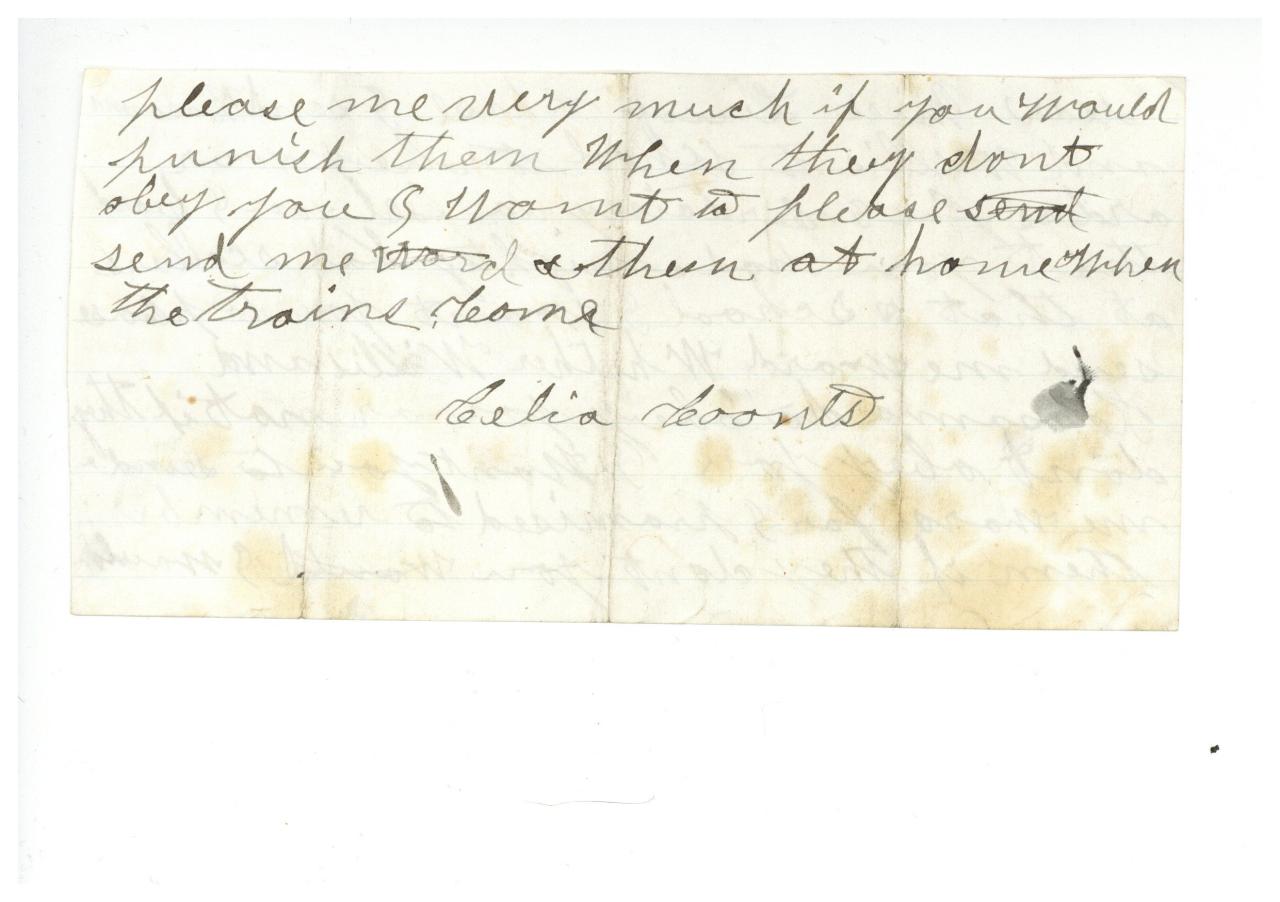 please me very much if you would
punish them when they dont
obey you I want to please send
send me word & them at home when
the trains come
Celia Coonts